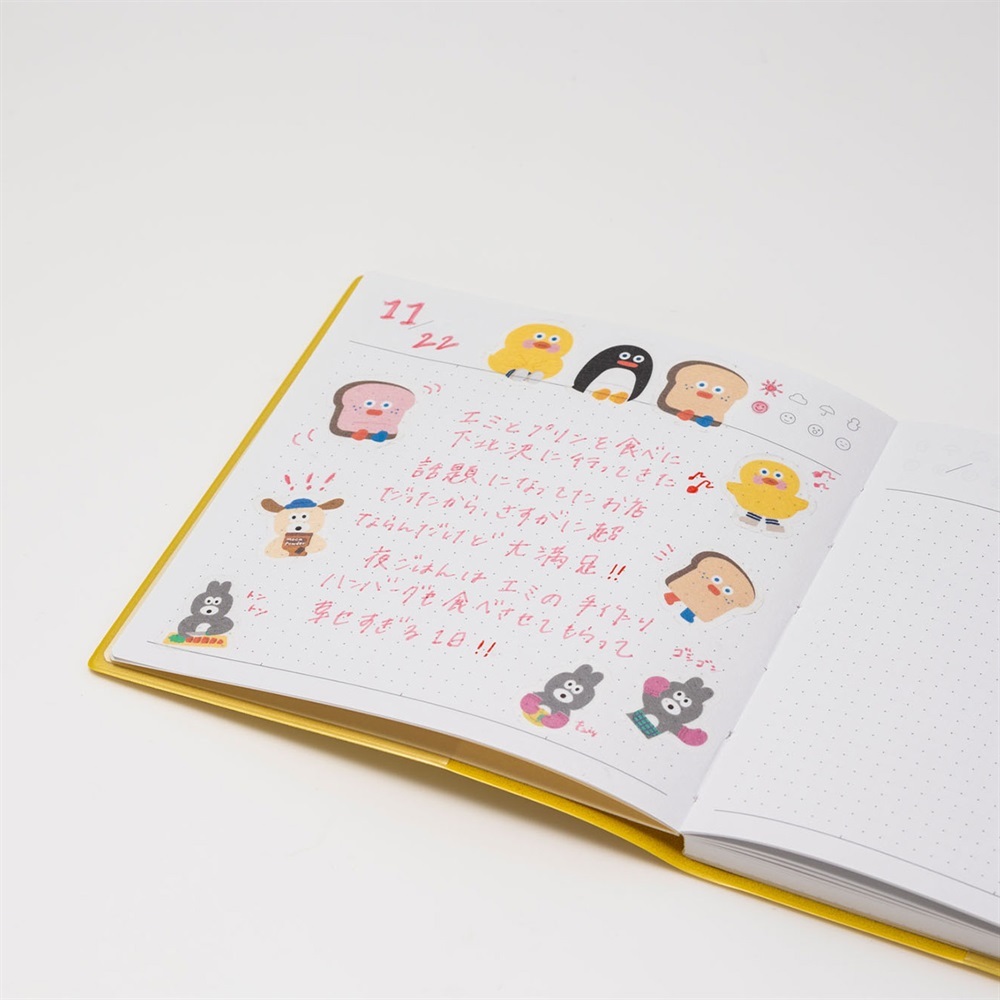 11/22
エミとプリンを食べに
下北沢に行ってきた♪
話題になってたお店
だったから、さすがに超
ならんだけど大満足!!
夜ごはんは エミの 手作り
ハンバーグも食べさせてもらって
幸せすぎる1日!!
トン
トン
ゴシゴシ